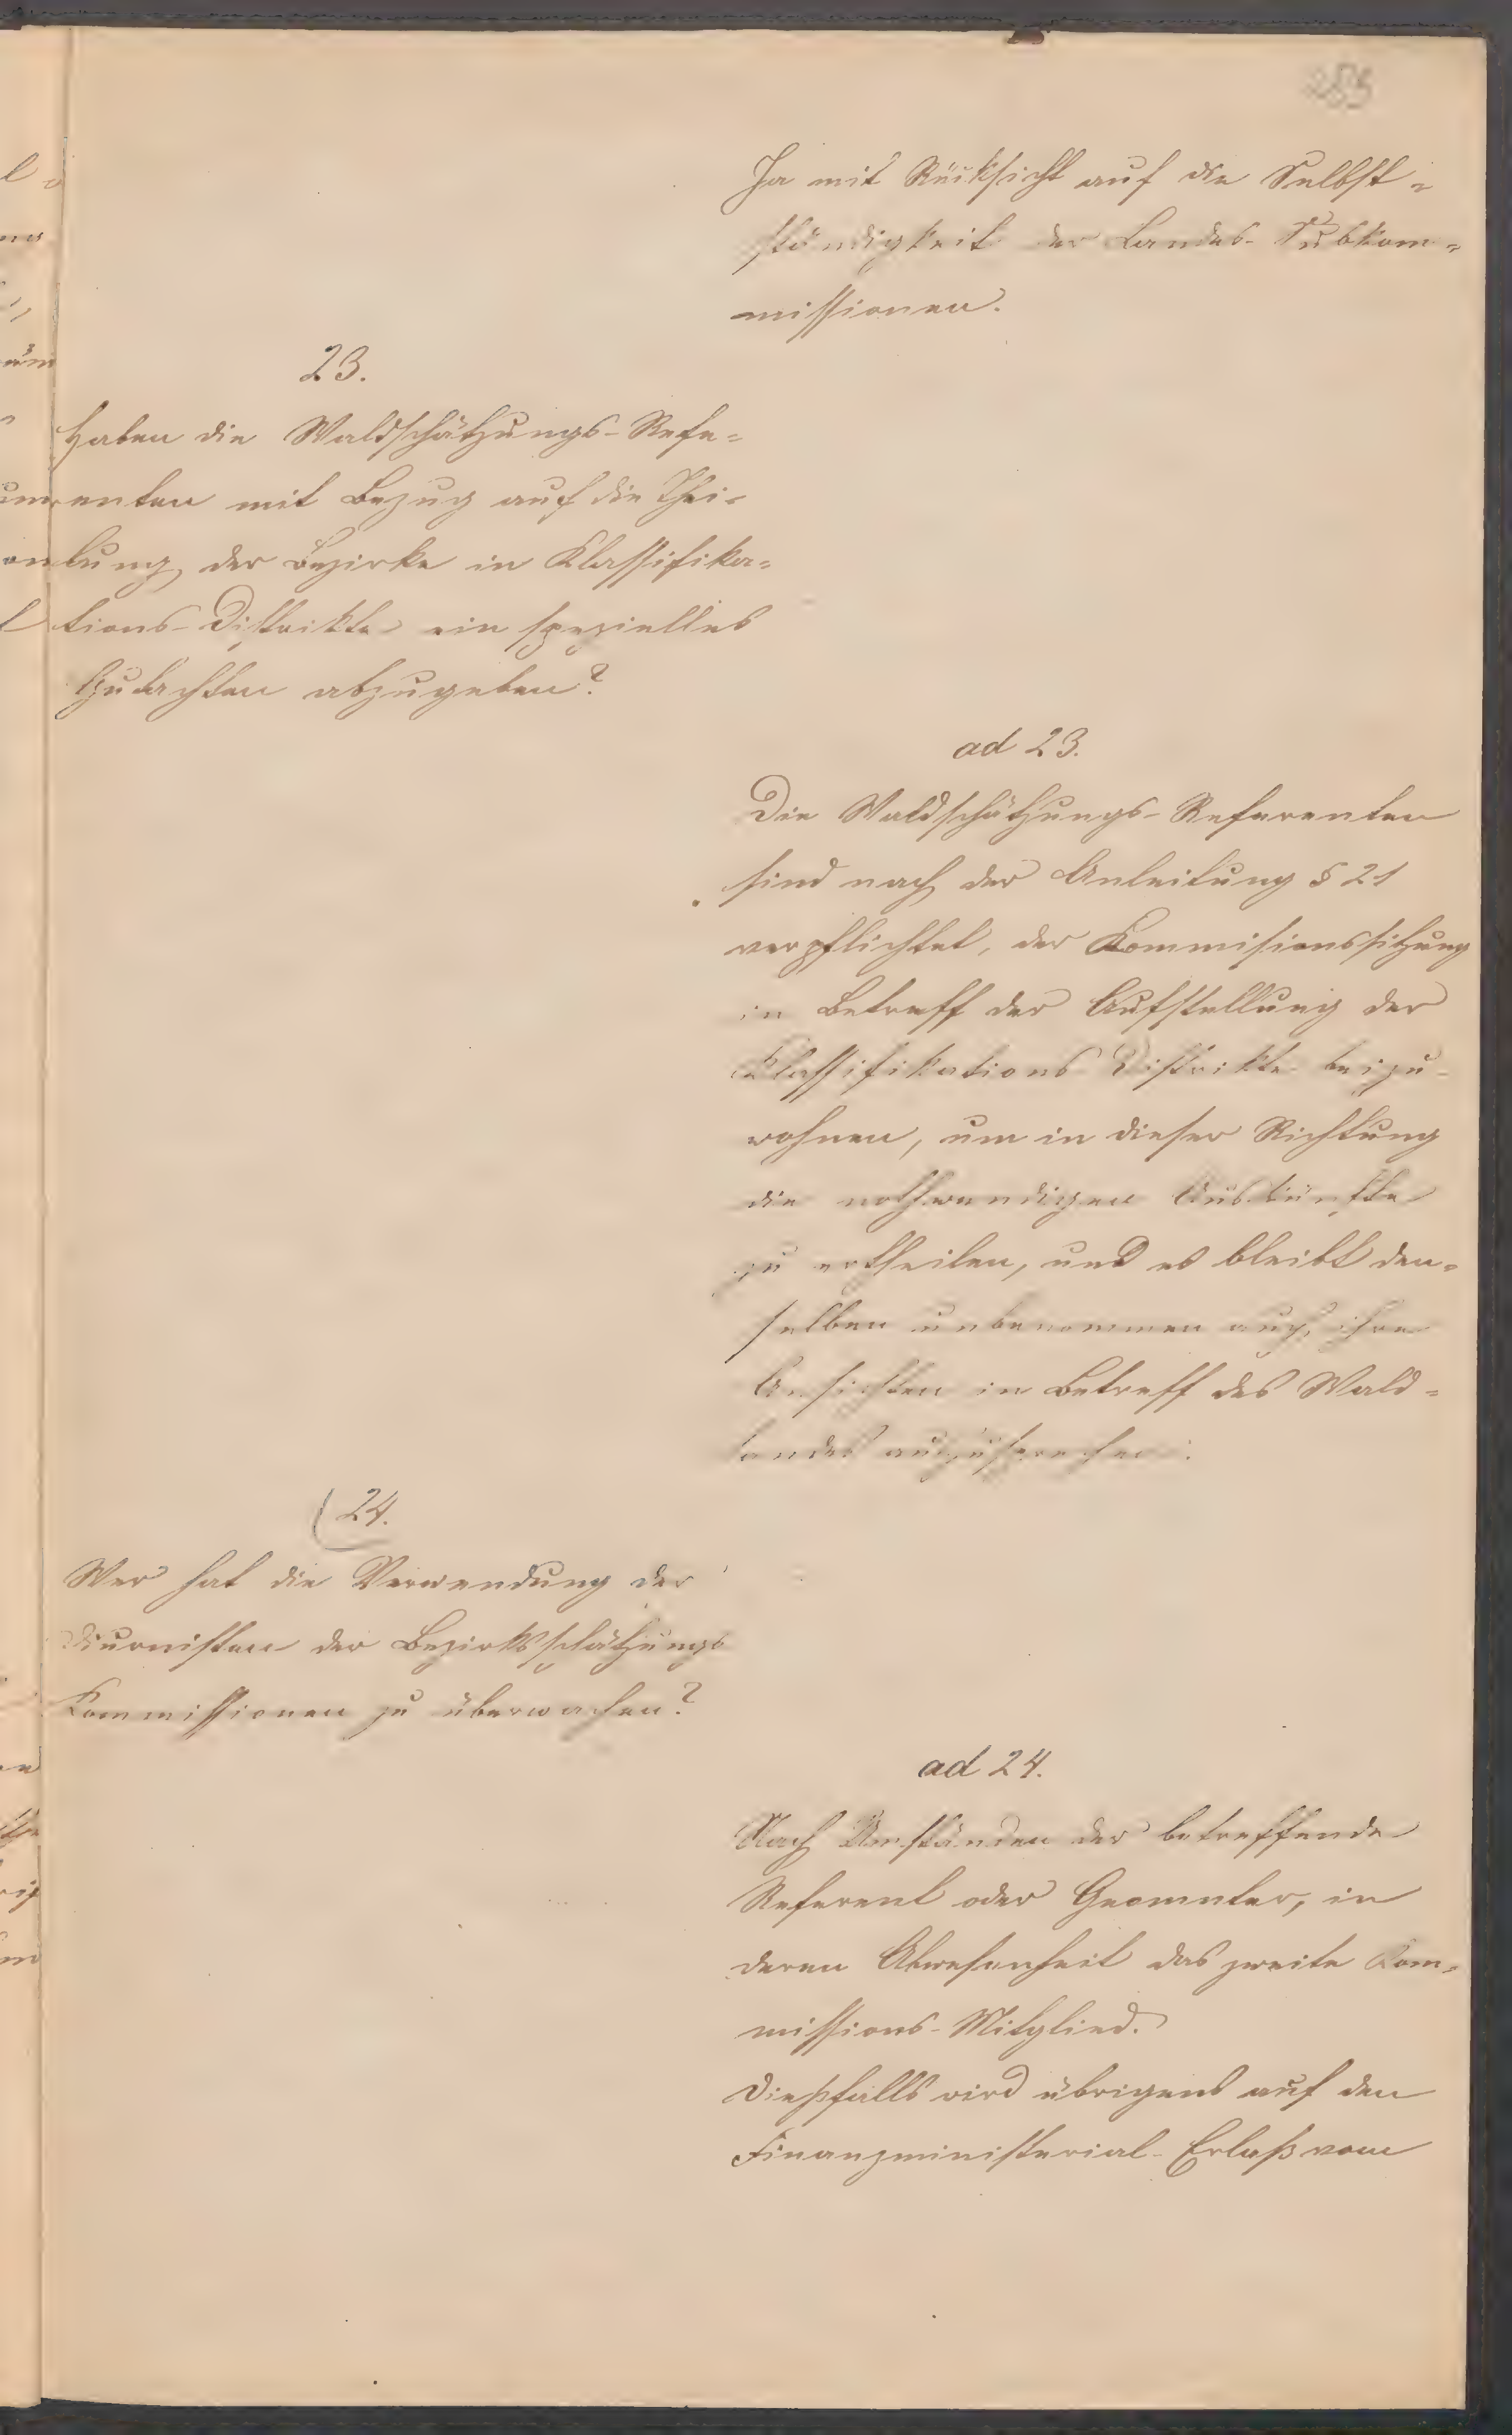 283
Ja mit Rücksicht auf die Selbst=
ständigkeit der Landes-Subkom=
missionen.
23.
Haben die Waldschätzungs-Refe=
renten mit Bezug auf die Thei=
lung der Bezirke in Klassifika=
tions-Distrikte ein spezielles
Gutachten abzugeben?
ad 23.
Die Waldschätzungs-Referenten
sind nach der Anleitung § 21
verpflichtet, der Kommisionssitzung
in Betreff der Aufstellung der
Klassifikations Distrikte beizu=
wohnen, um in dieser Richtung
die nothwendigen Auskünfte
zu ertheilen, und es bleibt den=
selben unbenommen auch ihre
Ansichten in Betreff des Wald=
landes auszusprechen.
24.
Wer hat die Verwendung der
Diurnisten der Bezirksschätzungs
Kommissionen zu überwachen?
ad 24.
Nach Umständen der betreffende
Referent oder Geometer, in
deren Abwesenheit das zweite Kom=
missions-Mitglied.
Dießfalls wird übrigens auf den
Finanzministerial-Erlaß vom